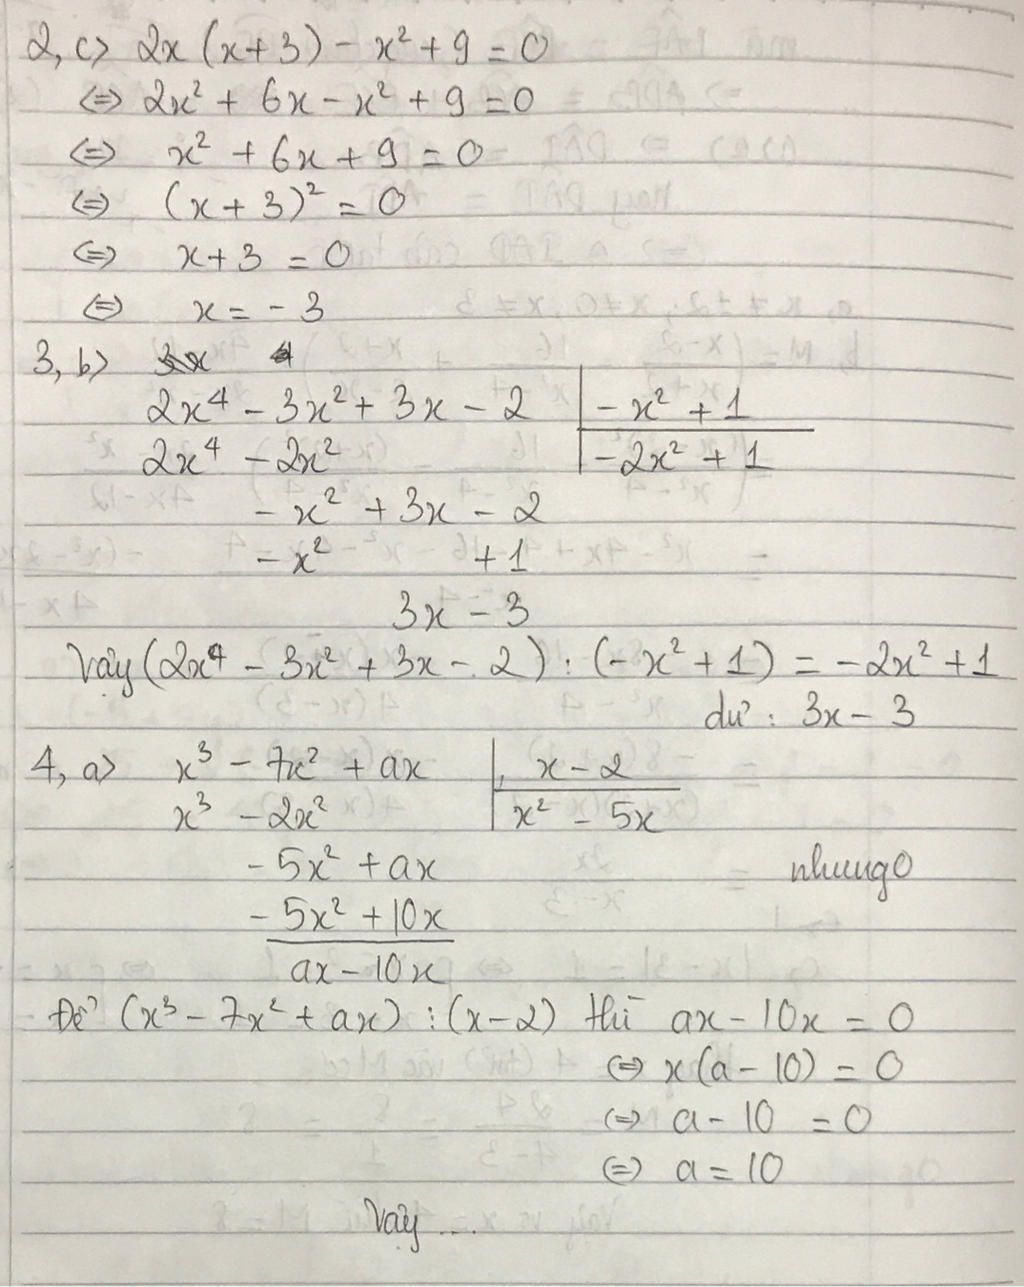 2, c> 2x (x+3) - x² + 9 = 0
<=> 2x² + 6x - x² + 9 = 0
<=> x² + 6x + 9 = 0
<=> (x + 3)² = 0
<=> x+3 = 0
<=> x = - 3
3, b>
2x⁴ - 3x² + 3x - 2 | -x² + 1
2x⁴ - 2x² | -2x² + 1
- x² + 3x - 2
- x² + 1
3x - 3
Vậy (2x⁴ - 3x² + 3x - 2) : (-x² + 1) = -2x² + 1
dư : 3x - 3
4, a> x³ - 7x² + ax | x - 2
x³ - 2x² | x² - 5x
- 5x² + ax nhungo
- 5x² + 10x
ax - 10x
Để (x³ - 7x² + ax) : (x-2) thì ax - 10x = 0
<=> x(a - 10) = 0
<=> a - 10 = 0
<=> a = 10
Vậy ...